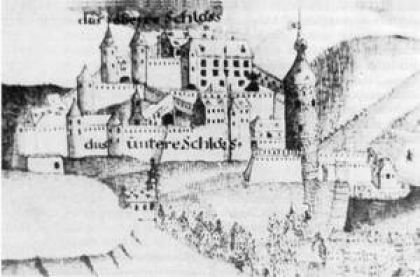 das obere Schloss
das untere Schloss.